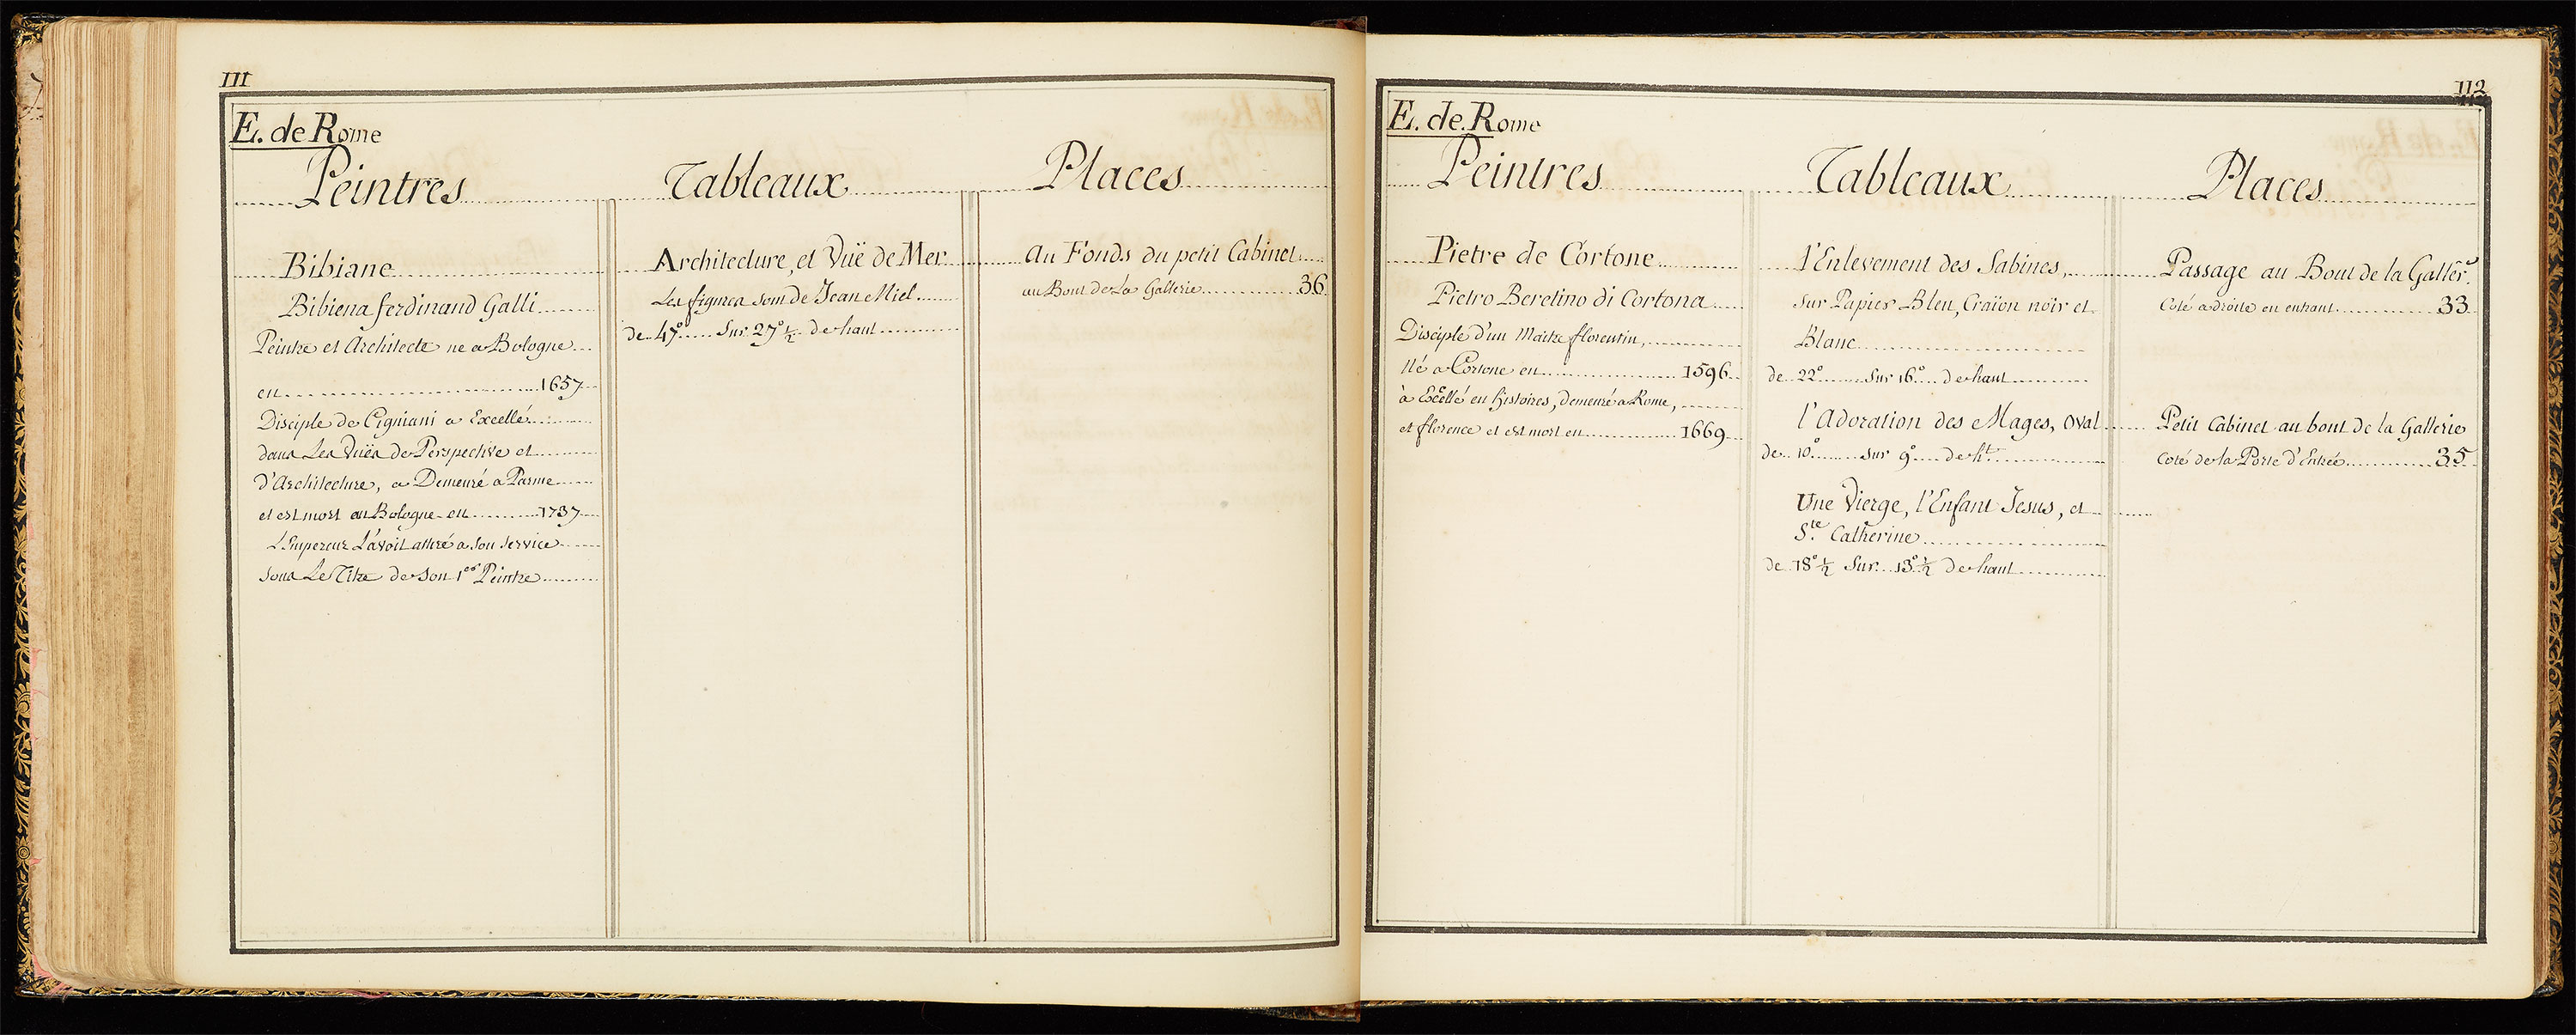 111
E. de Rome
Peintres Tableaux Places
Bibiane
Bibiena ferdinand Galli
Peintre et Architecte ne a Bologne
en 1657
Disciple de Cigniani a Excellé
dans Les Vuës de Perspective et
d'Architecture, a Demeuré a Parme
et est mort au Bologne en 1737
L'Empereur L'avoit attiré a son service
sous Le Titre de son 1er Peintre
Architecture, et Vuë de Mer
Les figures sont de Jean Miel
de 47° Sur 27° 1/2 de haut
Au Fonds du petit Cabinet
au Bout de La Gallerie 36
112
E. de Rome
Peintres Tableaux Places
Pietre de Cortone
Pietro Beretino di Cortona
Disciple d'un Maitre florentin,
Né a Cortone en 1596
à Excellé en histoires, demeuré a Rome,
et florence et est mort en 1669
l'Enlevement des Sabines,
sur Papier Bleu, Craïon noir et
Blanc
de 22° Sur 16° de haut
l'Adoration des Mages, oval
de 10° sur 9° de ht
Une Vierge, l'Enfant Jesus, et
Ste Catherine
de 18° 1/2 Sur 13° 1/2 de haut
Passage au Bout de la Galler.e
Coté a droite en entrant 33
Petit Cabinet au bout de la Gallerie
Coté de la Porte d'Entrée 35